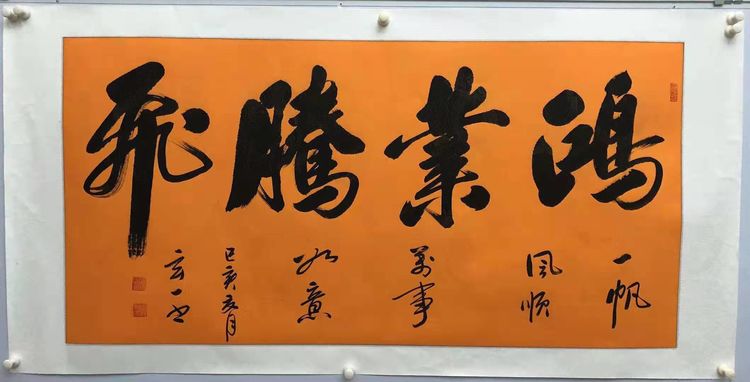 鴻業騰飛
一帆
風順
萬事
如意
己亥年月
玄一书